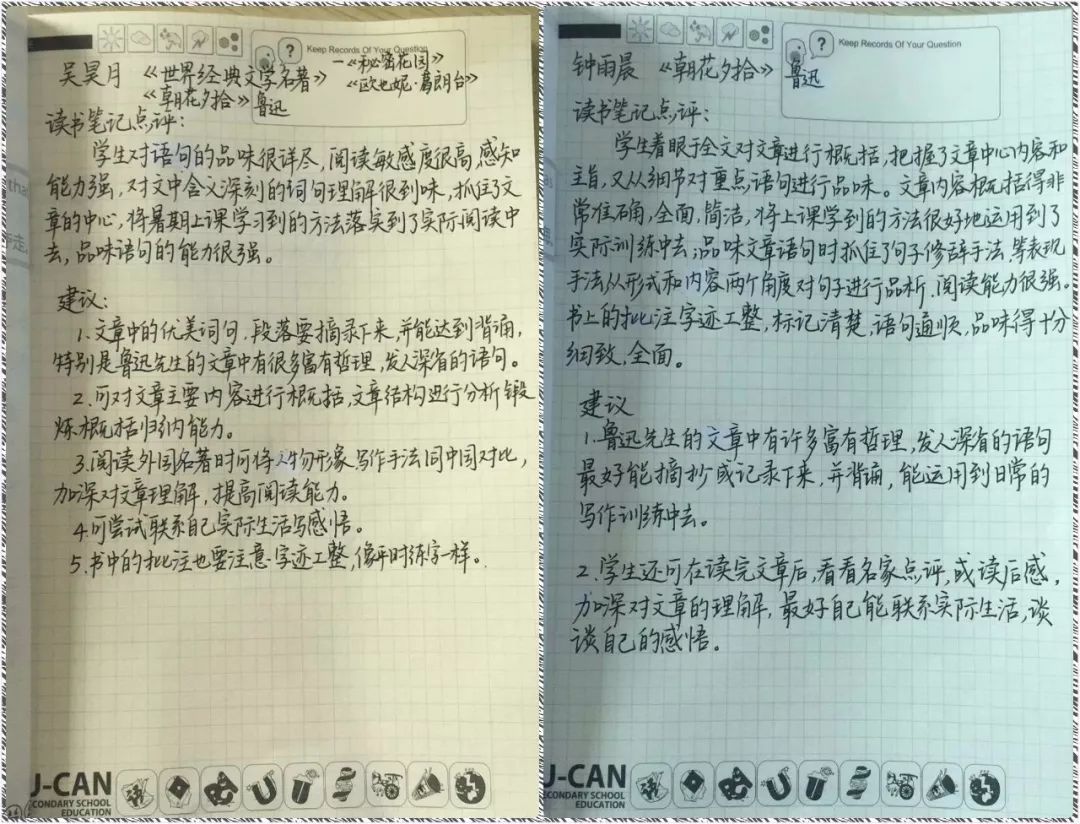 Keep Records Of Your Question
吴昊月 《世界经典文学名著》—《秘密花园》
《欧也妮·葛朗台》
《朝花夕拾》鲁迅
读书笔记点评:
学生对语句的品味很详尽,阅读敏感度很高,感知
能力强,对文中含义深刻的词句理解很到味,抓住了文
章的中心,将暑期上课学习到的方法落实到了实际阅读中
去,品味语句的能力很强。
建议:
1.文章中的优美词句、段落要摘录下来,并能达到背诵,
特别是鲁迅先生的文章中有很多富有哲理,发人深省的语句。
2.可对文章主要内容进行概括,文章结构进行分析锻
炼概括归纳能力。
3.阅读外国名著时可将人物形象、写作手法同中国对比,
加深对文章理解,提高阅读能力。
4.可尝试联系自己实际生活写感悟。
5.书中的批注也要注意字迹工整,像平时练字一样。
J-CAN
CONDARY SCHOOL
EDUCATION
Keep Records Of Your Question
钟雨晨 《朝花夕拾》鲁迅
读书笔记点评:
学生着眼于全文对文章进行概括,把握了文章中心内容和
主旨,又从细节对重点语句进行品味。文章内容概括得非
常准确,全面,简洁,将上课学到的方法很好地运用到了
实际训练中去;品味文章语句时抓住了句子修辞手法,等表现
手法从形式和内容两个角度对句子进行品析,阅读能力很强。
书上的批注字迹工整,标记清楚,语句通顺,品味得十分
细致,全面。
建议
1.鲁迅先生的文章中有许多富有哲理,发人深省的语句
最好能摘抄或记录下来,并背诵,能运用到日常的
写作训练中去。
2.学生还可在读完文章后,看看名家点评,或读后感,
加深对文章的理解,最好自己能联系实际生活,谈
谈自己的感悟。
J-CAN
CONDARY SCHOOL
EDUCATION